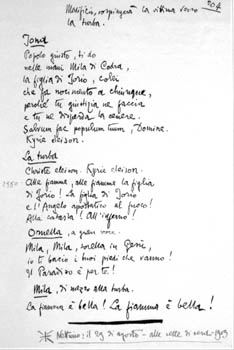 Malefizia, respingerà la vittima verso
la turba.
204
Iona
Popolo giusto, ti do
nelle mani Mila di Codra,
la figlia di Jorio, colei
che fa nocimento a chiunque,
perché tu giustizia ne faccia
e tu ne disperda la cenere.
Salvum fac populum tuum, Domine.
Kyrie eleison.
La turba
Christe eleison. Kyrie eleison.
1950
Alle fiamme, alle fiamme la figlia
di Jorio! La figlia di Jorio!
e l'Angelo apostatico al fuoco!
Alla catasta! All'inferno!
Ornella, a gran voce.
Mila, Mila, sorella in Gesù,
io ti bacio i tuoi piedi che vanno!
Il Paradiso è per te!
Mila, di mezzo alla turba.
La fiamma è bella! La fiamma è bella!
Nettuno: il 29 di agosto - alle